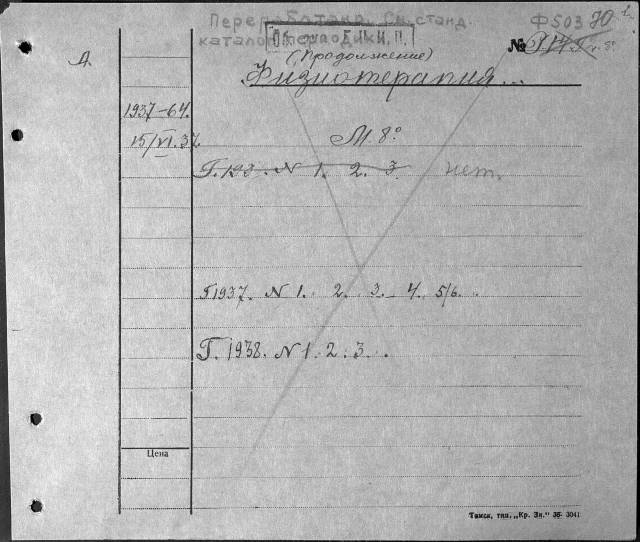 Переработана. См. станд.
каталог периодики.
Ф503
70
(Продолжение)
№
Д.
Физиотерапия...
1937-64.
15/VI.37
М. 8°
Г. 193 . N 1. 2. 3. нет.
Г 1937. N 1. 2. 3. 4. 5/6.
Г. 1938. N 1. 2. 3.
Цена
Томск, тип. „Кр. Зн." 36- 3041